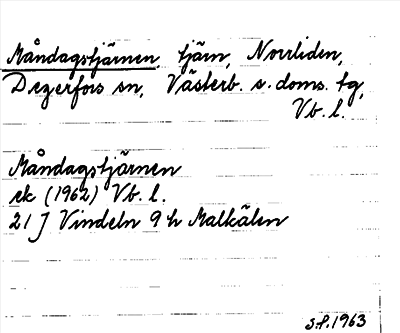 Måndagstjärnen, tjärn, Norrliden,
Degerfors sn, Västerb. s. doms. tg,
Vb. l.
Måndagstjärnen
ek (1962) Vb. l.
21 J Vindeln 9 h Malkälen
S.P. 1963